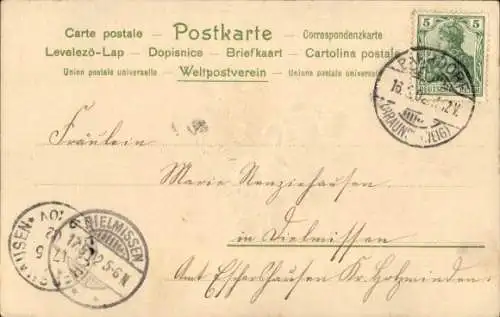 Carte postale – Postkarte – Correspondenzkarte
Levelező-Lap – Dopisnice – Briefkaart – Cartolina postale
Union postale universelle – Weltpostverein – Unione postale universale
5 5
16.
(BRAUNSCHWEIG)
Fräulein
Marie
in Dielmissen
Amt Eschershausen Kr. Holzminden
DIELMISSEN
5-6N